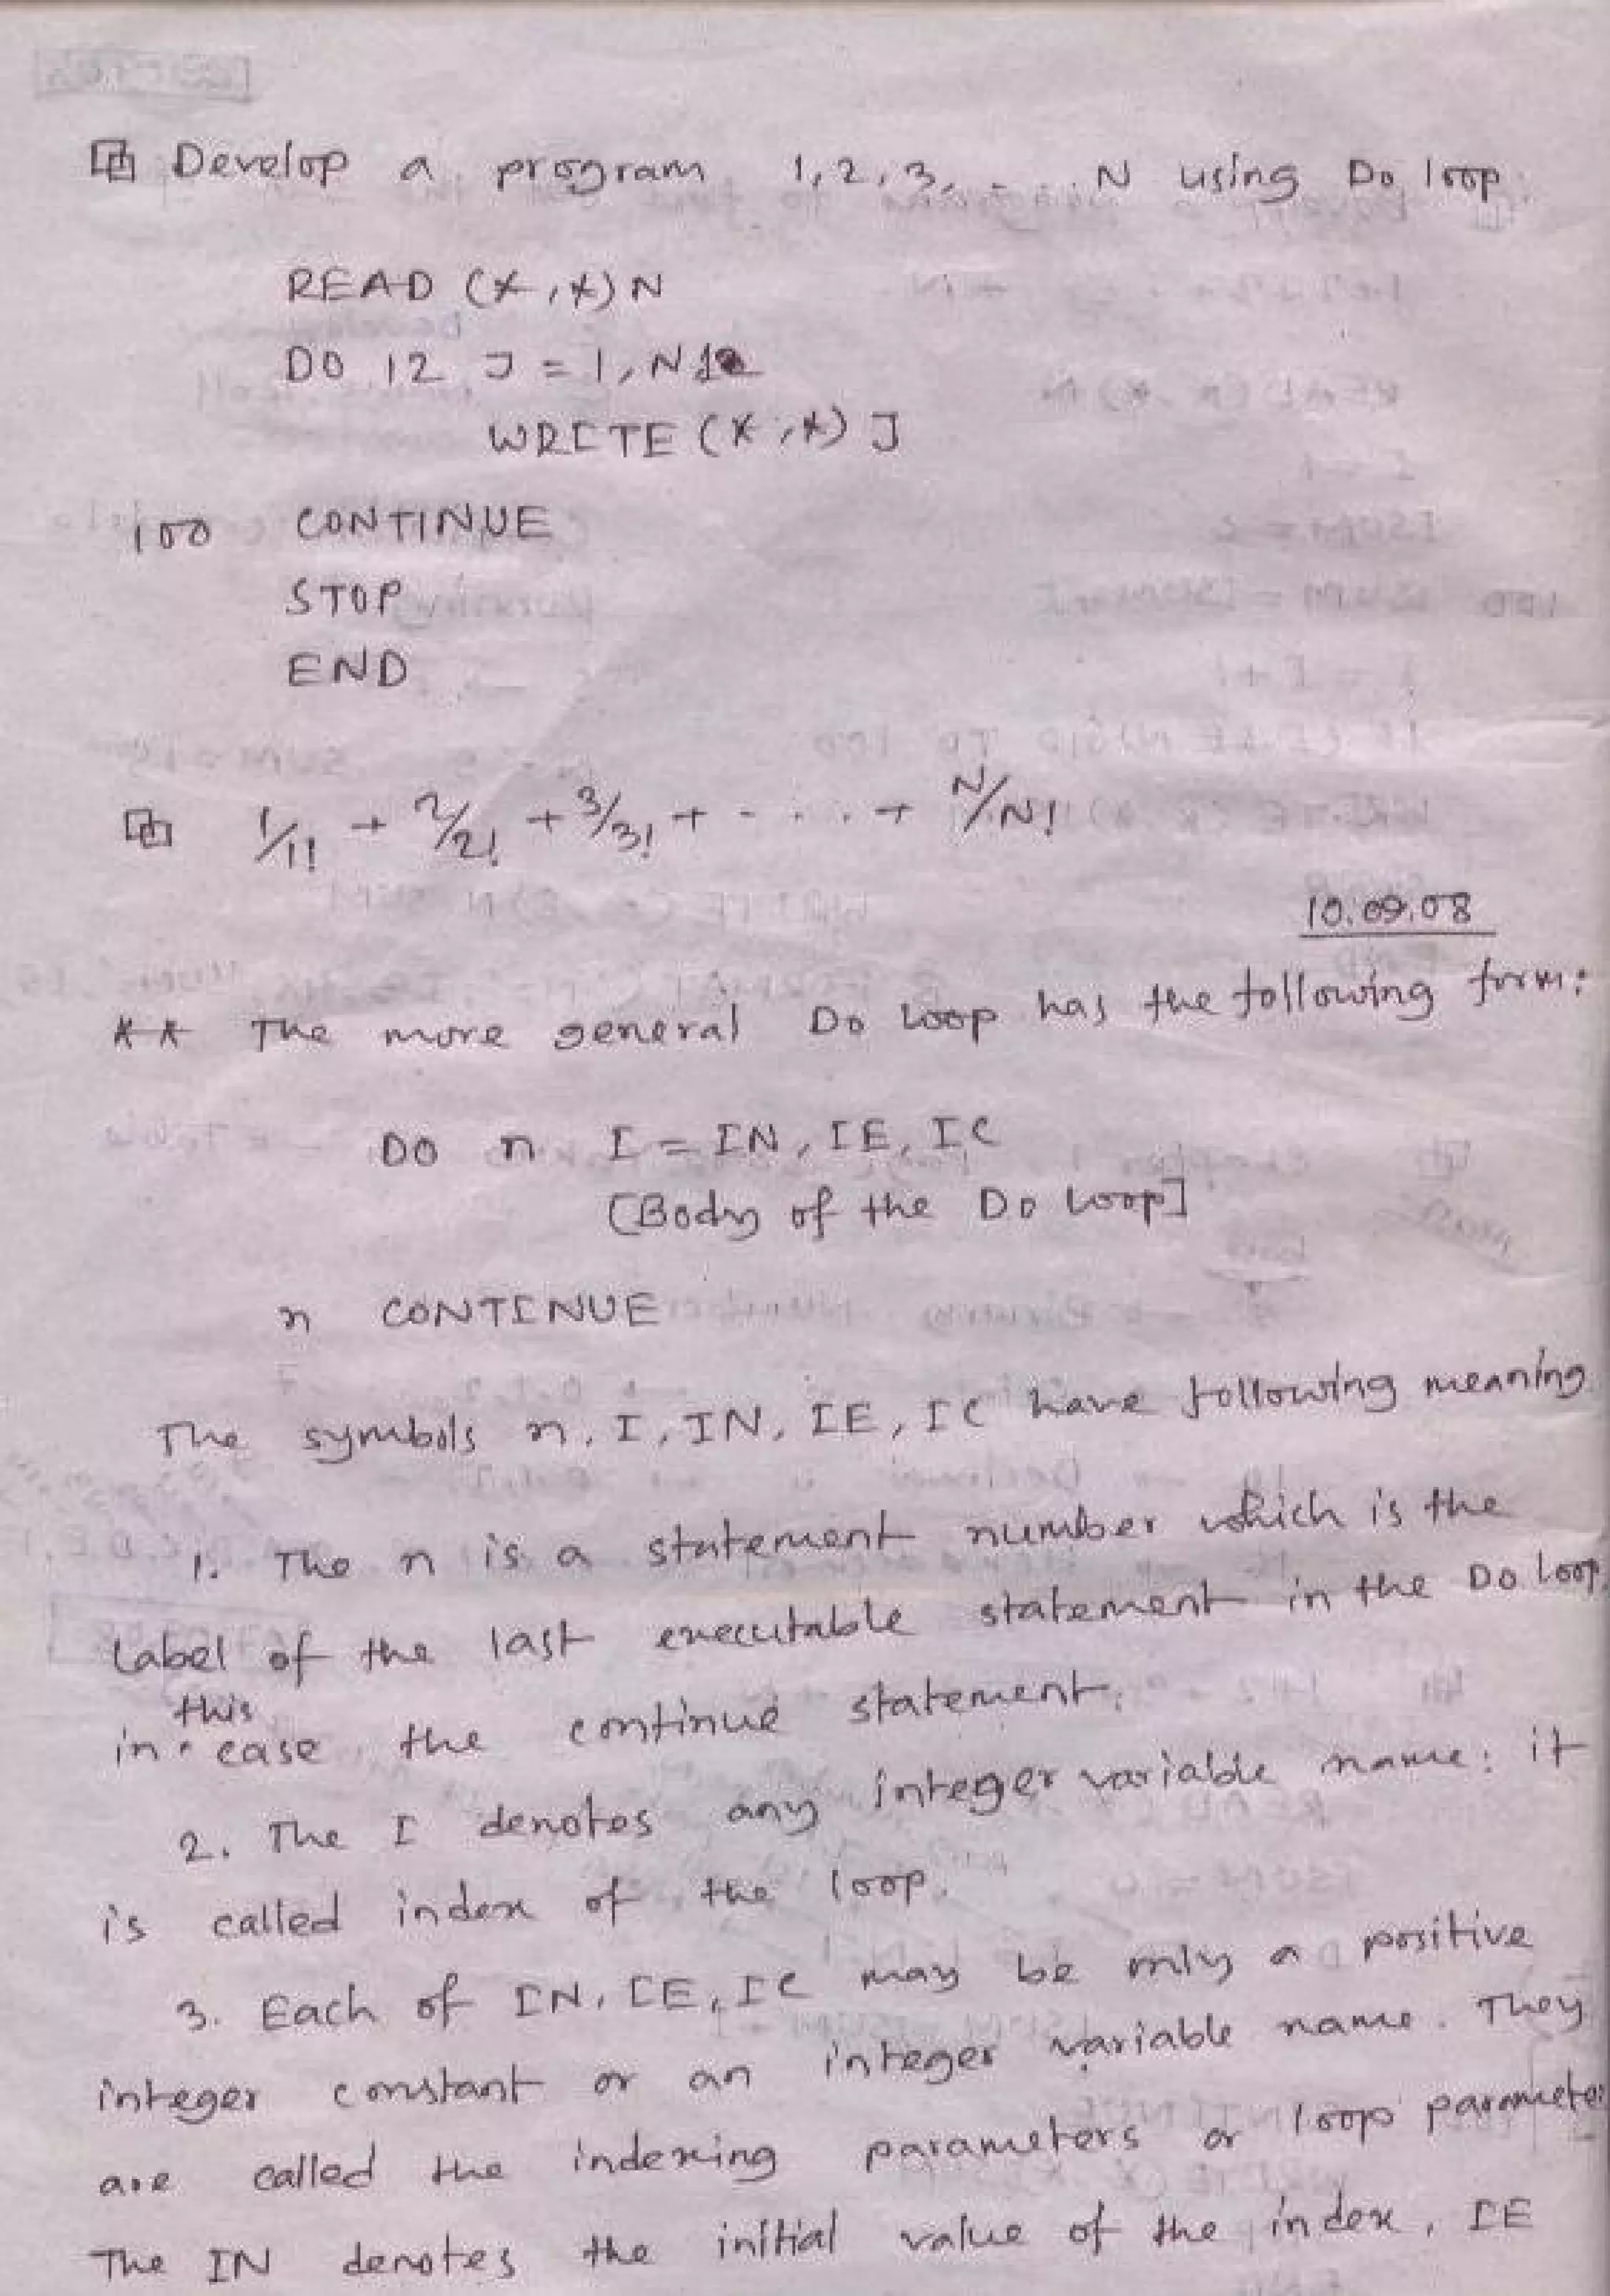 Develop a program 1,2,3, . . . N using Do loop.
READ (*,*) N
DO 12 J = 1, N
WRITE (*,*) J
100 CONTINUE
STOP
END
1/1! + 2/2! + 3/3! + - . . . + N/N!
10.09.08
** The more general Do Loop has the following form:
DO n I = IN, IE, IC
[Body of the Do Loop]
n CONTINUE
The symbols n, I, IN, IE, IC have following meaning
1. The n is a statement number which is the
Label of the last executable statement in the Do Loop,
in this case the continue statement.
2. The I denotes any integer variable name; it
is called index of the loop.
3. Each of IN, IE, IC may be only a positive
integer constant or an integer variable name. They
are called the indexing parameters or loop parameter
The IN denotes the initial value of the index, IE